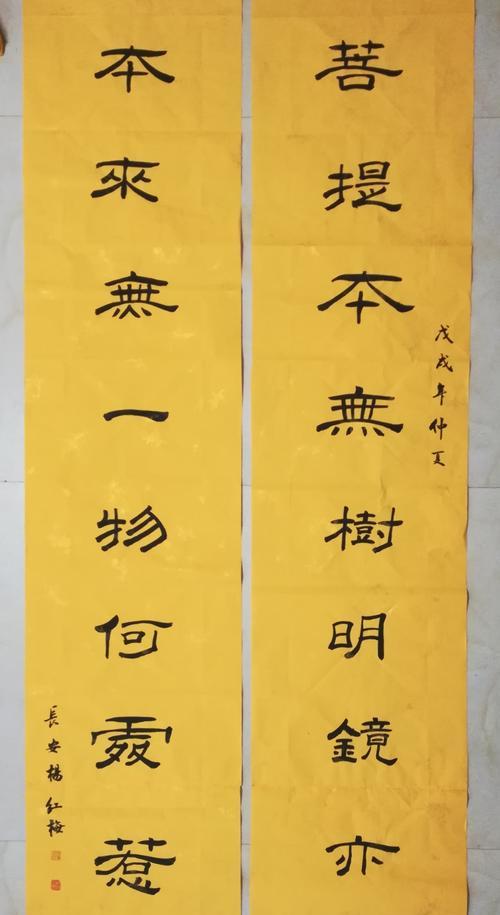 菩提本無樹明鏡亦
戊戌年仲夏
本來無一物何處惹
長安楊红梅